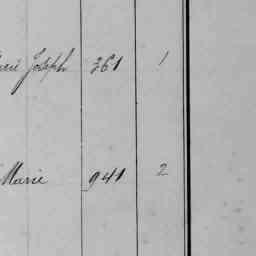 Joseph 361 1
Marie 941 2